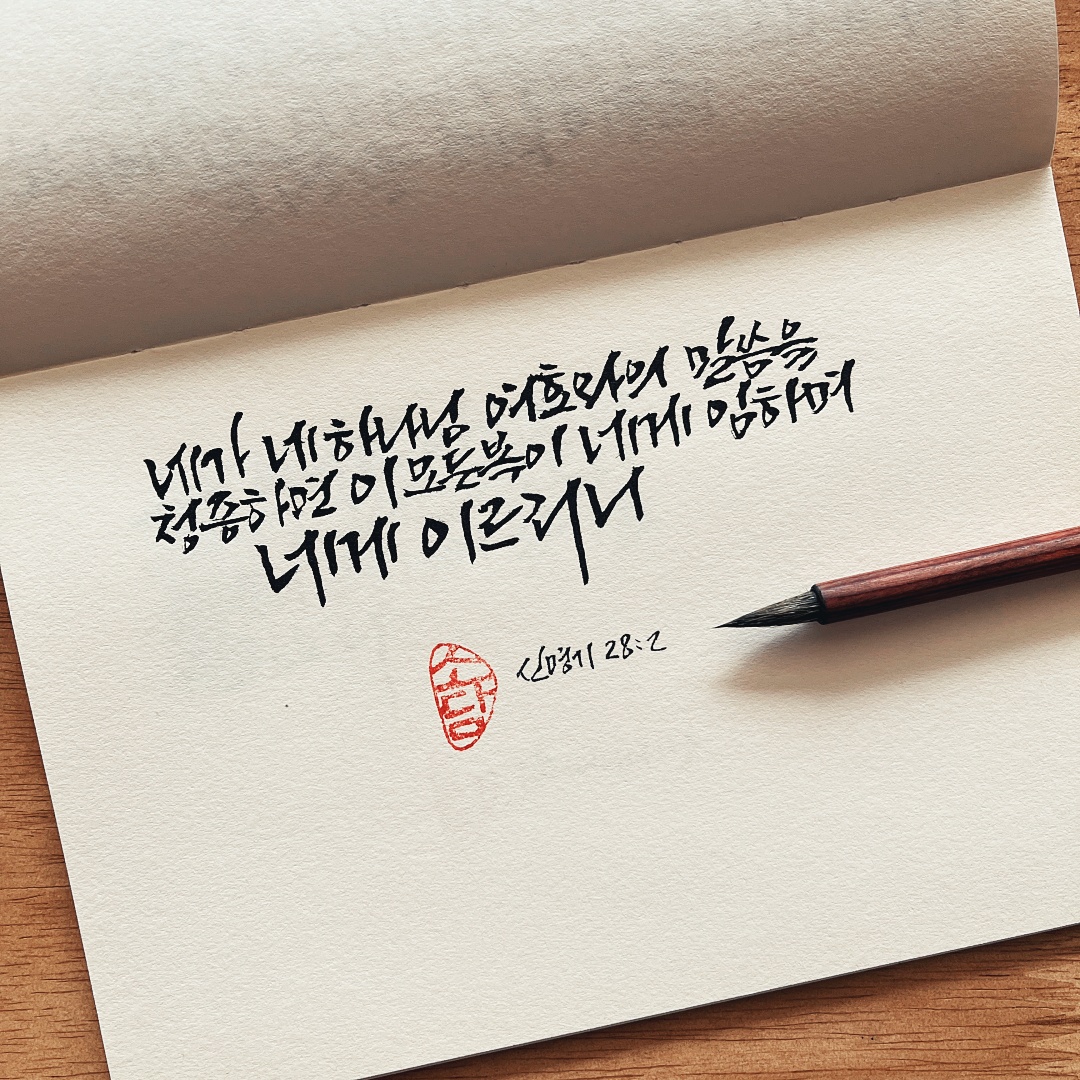 네가 네 하나님 여호와의 말씀을
청종하면 이 모든 복이 네게 임하며
네게 이르리니
신명기 28:2
소람